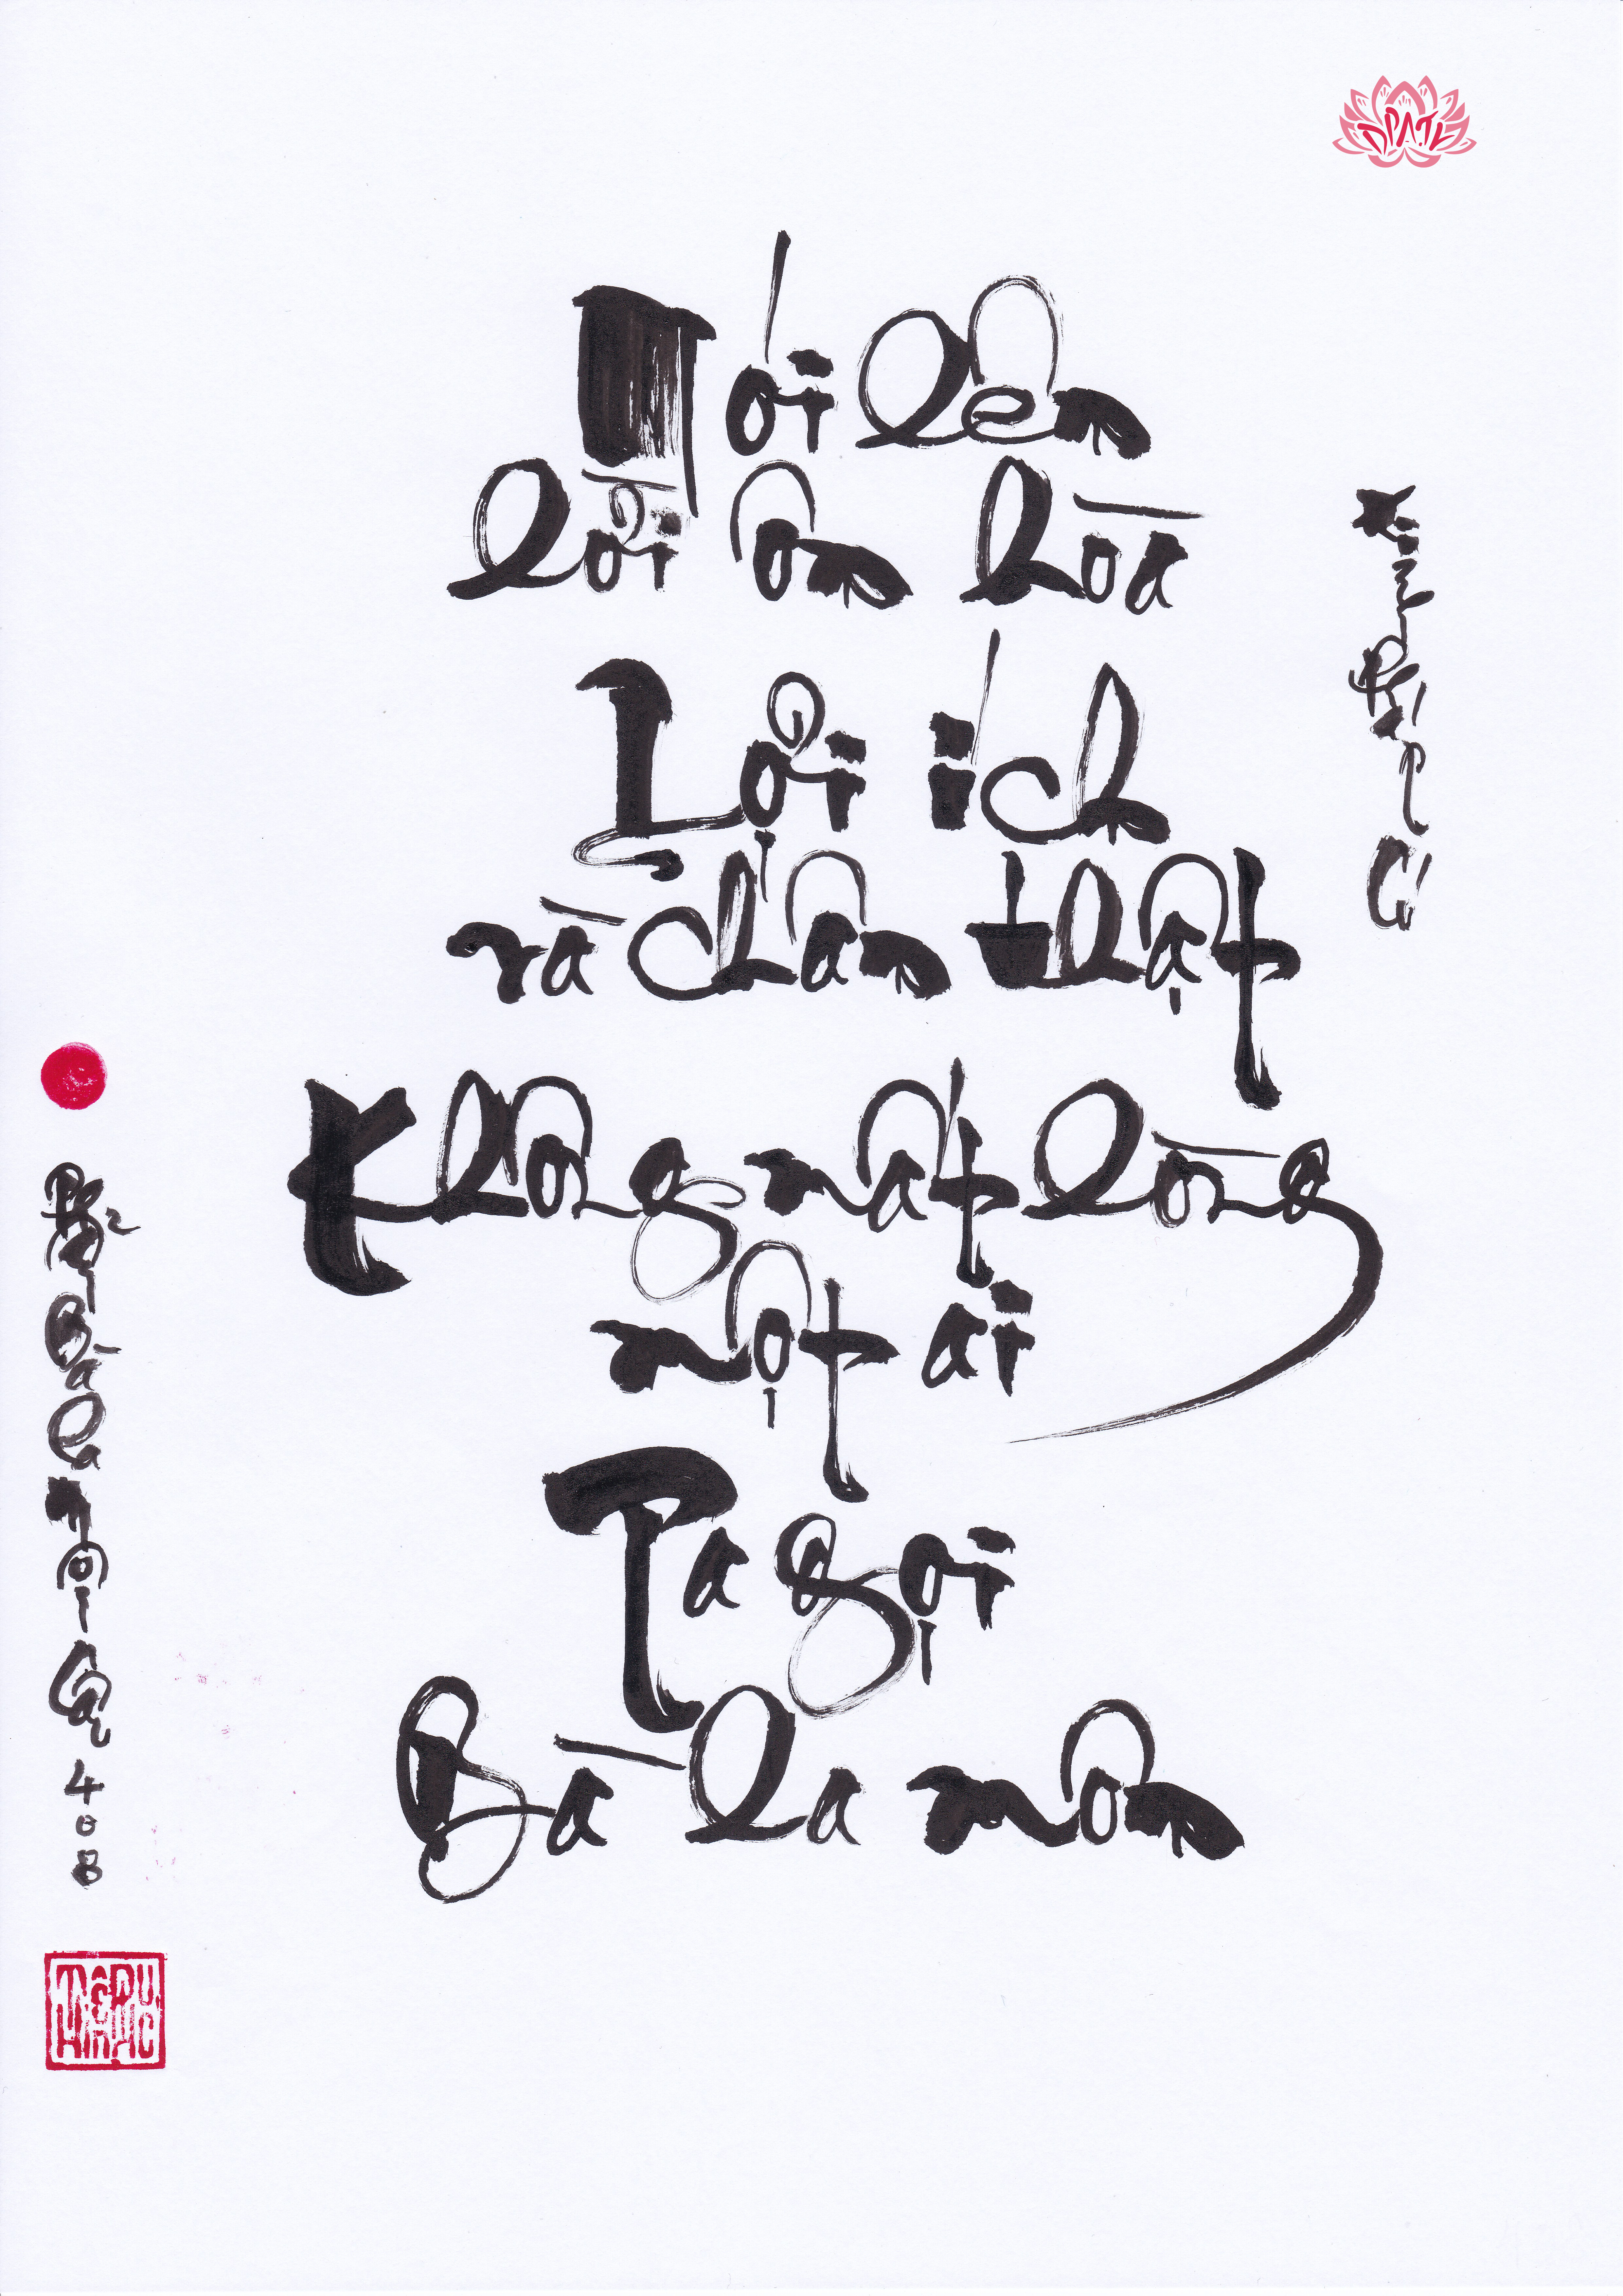 Nói lên
lời ôn hòa
Lợi ích
và chân thật
Không mất lòng
một ai
Ta gọi
Bà la môn
Kinh Pháp Cú
Phẩm Bà La Môn Câu 408